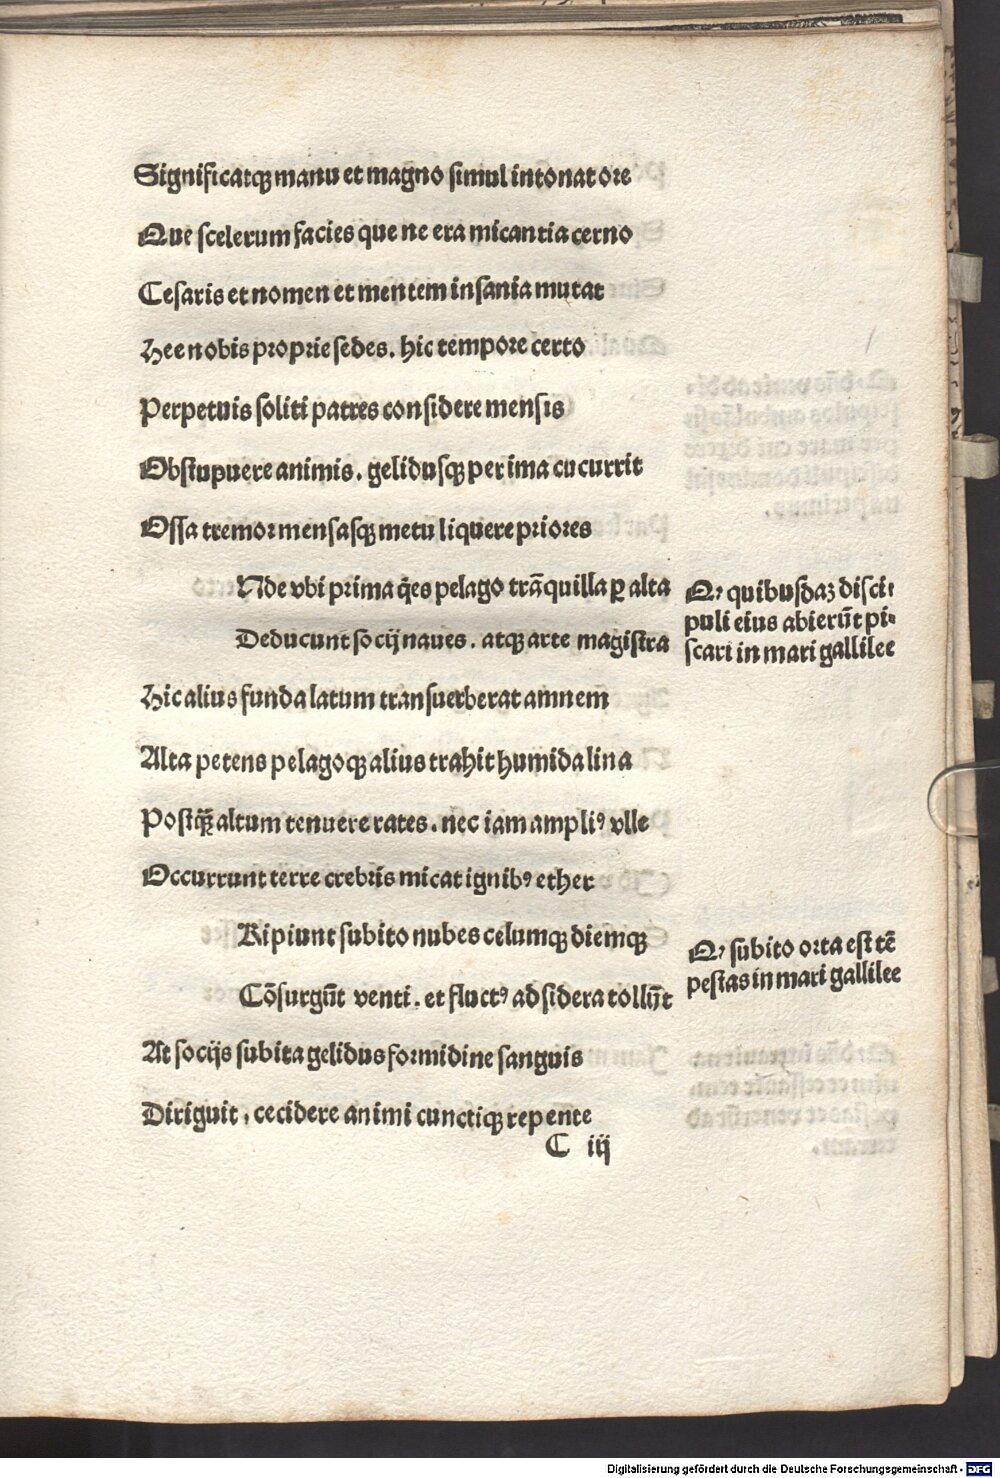 Significatqꝫ manu et magno simul intonat ore
Que scelerum facies que ne era micantia cerno
Cesaris et nomen et mentem insania mutat
Hee nobis proprie sedes. hic tempore certo
Perpetuis soliti patres considere mensis
Obstupuere animis. gelidusqꝫ per ima cucurrit
Ossa tremor mensasqꝫ metu liquere priores
Nde vbi prima q̄es pelago trāquilla ꝑ alta
Deducunt socij naues. atqꝫ arte magistra
Hic alius funda latum transuerberat amnem
Alta petens pelagoqꝫ alius trahit humida lina
Postqꝫ̄ altum tenuere rates. nec iam ampliꝰ vlle
Occurrunt terre crebris micat ignibꝰ ether
Ripiunt subito nubes celumqꝫ diemqꝫ
Cōsurgūt venti. et fluctꝰ ad sidera tollūt
At socijs subita gelidus formidine sanguis
Diriguit. cecidere animi cunctiqꝫ repente
C iij
Q, quibusdaꝫ disci-
puli eius abierūt pi-
scari in mari gallilee
Q, subito orta est tē
pestas in mari gallilee
Digitalisierung gefördert durch die Deutsche Forschungsgemeinschaft - DFG